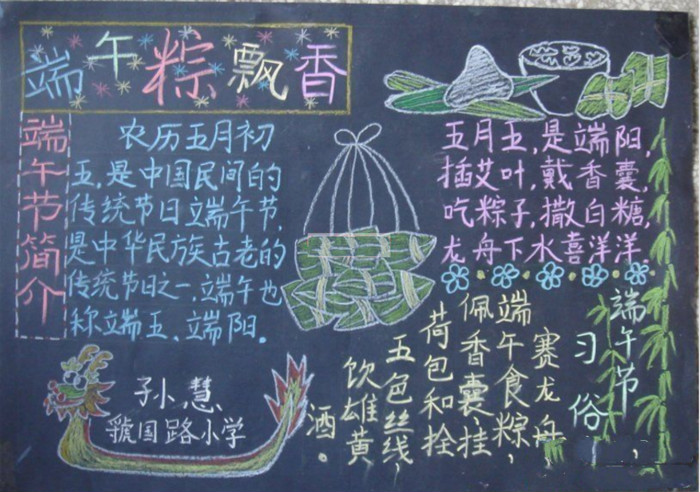 端午粽飘香
端午节简介
农历五月初
五,是中国民间的
传统节日端午节,
是中华民族古老的
传统节日之一,端午也
称端五、端阳。
五月五,是端阳,
插艾叶,戴香囊,
吃粽子,撒白糖,
龙舟下水喜洋洋.
端午节
习俗
赛龙舟,
端午食粽,
佩香囊,挂
荷包和拴
五色丝线,
饮雄黄
酒。
孙慧
虢国路小学